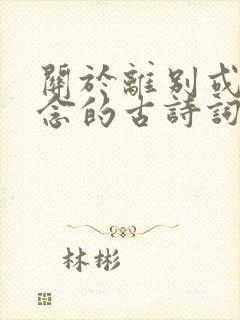 關於離別或
念的古詩詞
林彬